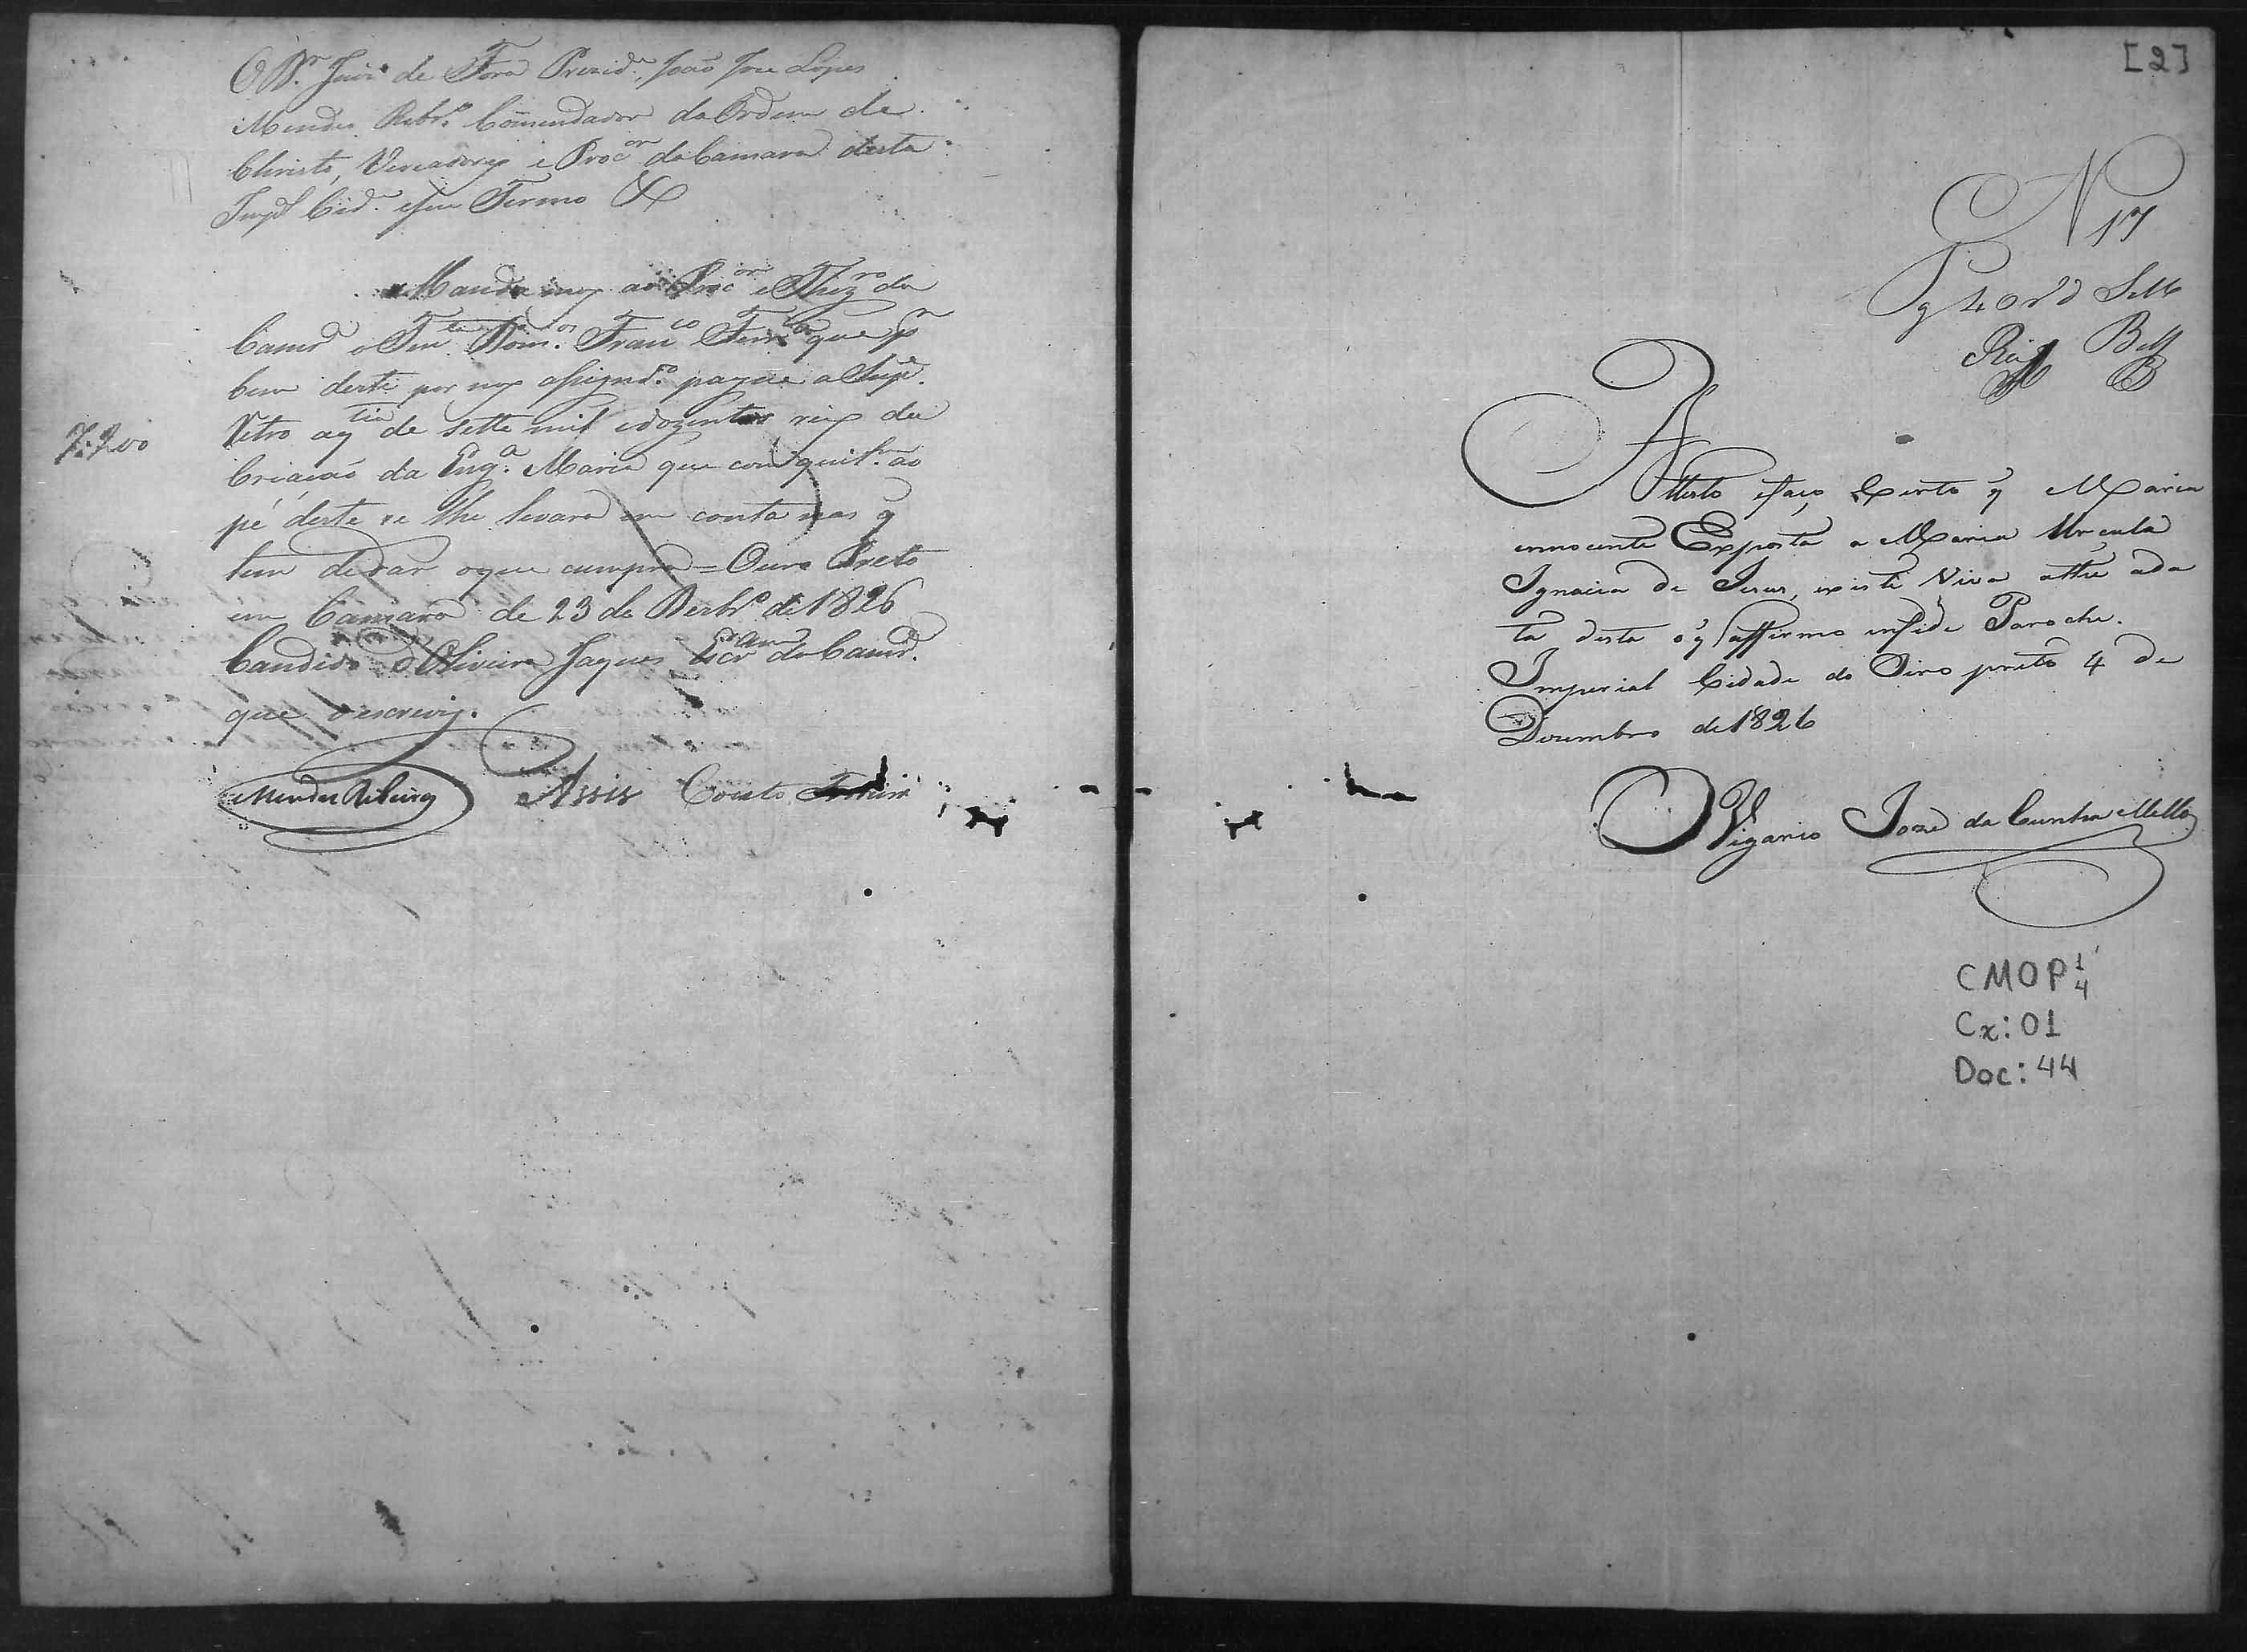 O Dr. Juiz de Fora Prezide. João Joze Lopes
Mendes Ribro. Comendador da Ordem de
Christo, Vereadores e Procor da Camara desta
Impl Cide. e seu Termo &
Mandamos ao Procor e Thezro da
Camra o Tente Doms. Franco Ferra que pr
bem deste por nos assignado. pague a Supe.
Retro a qtia de sette mil e dozentos reis da
7:200
Criação da Enga. Maria que com quitam. ao
pé deste se lhe levará em conta nas q
tem de dar o que cumpra = Ouro Preto
em Camara de 23 de Dezbro de 1826
Candido de Oliveira Jaques Escram da Camra.
que o escrevy.
Mendes Ribeiro Assis Couto Ferreira
[2]
N 17
Pg 40 rs d Sello
Attesto e faço certo q Maria
innocente Exposta a Maria Urcula
Ignacia de Jesus, existe Viva athe a da
ta desta o q affirmo in fide Parochi.
Imperial Cidade do Oiro preto 4 de
Dezembro de 1826
O Vigario Joze da Cunha Mello
CMOP 1/4
Cx: 01
Doc: 44